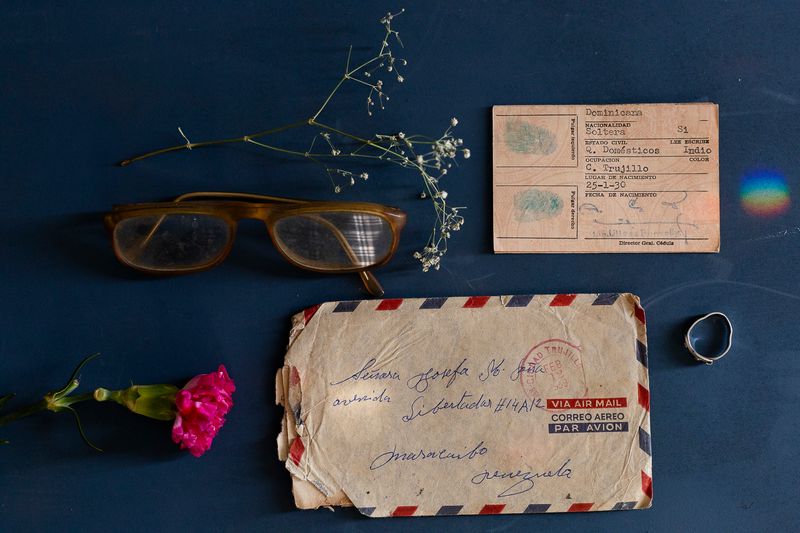 Dominicana
NACIONALIDAD
Soltera Si
ESTADO CIVIL LEE ESCRIBE
Q. Domésticos Indio
OCUPACION COLOR
C. Trujillo
LUGAR DE NACIMIENTO
25-1-30
FECHA DE NACIMIENTO
Pulgar izquierdo
Pulgar derecho
Director Gral. Cédula
CIUDAD TRUJILLO
Señora Josefa
avenida Libertador #14A12
Maracaibo
Venezuela
VIA AIR MAIL
CORREO AEREO
PAR AVION